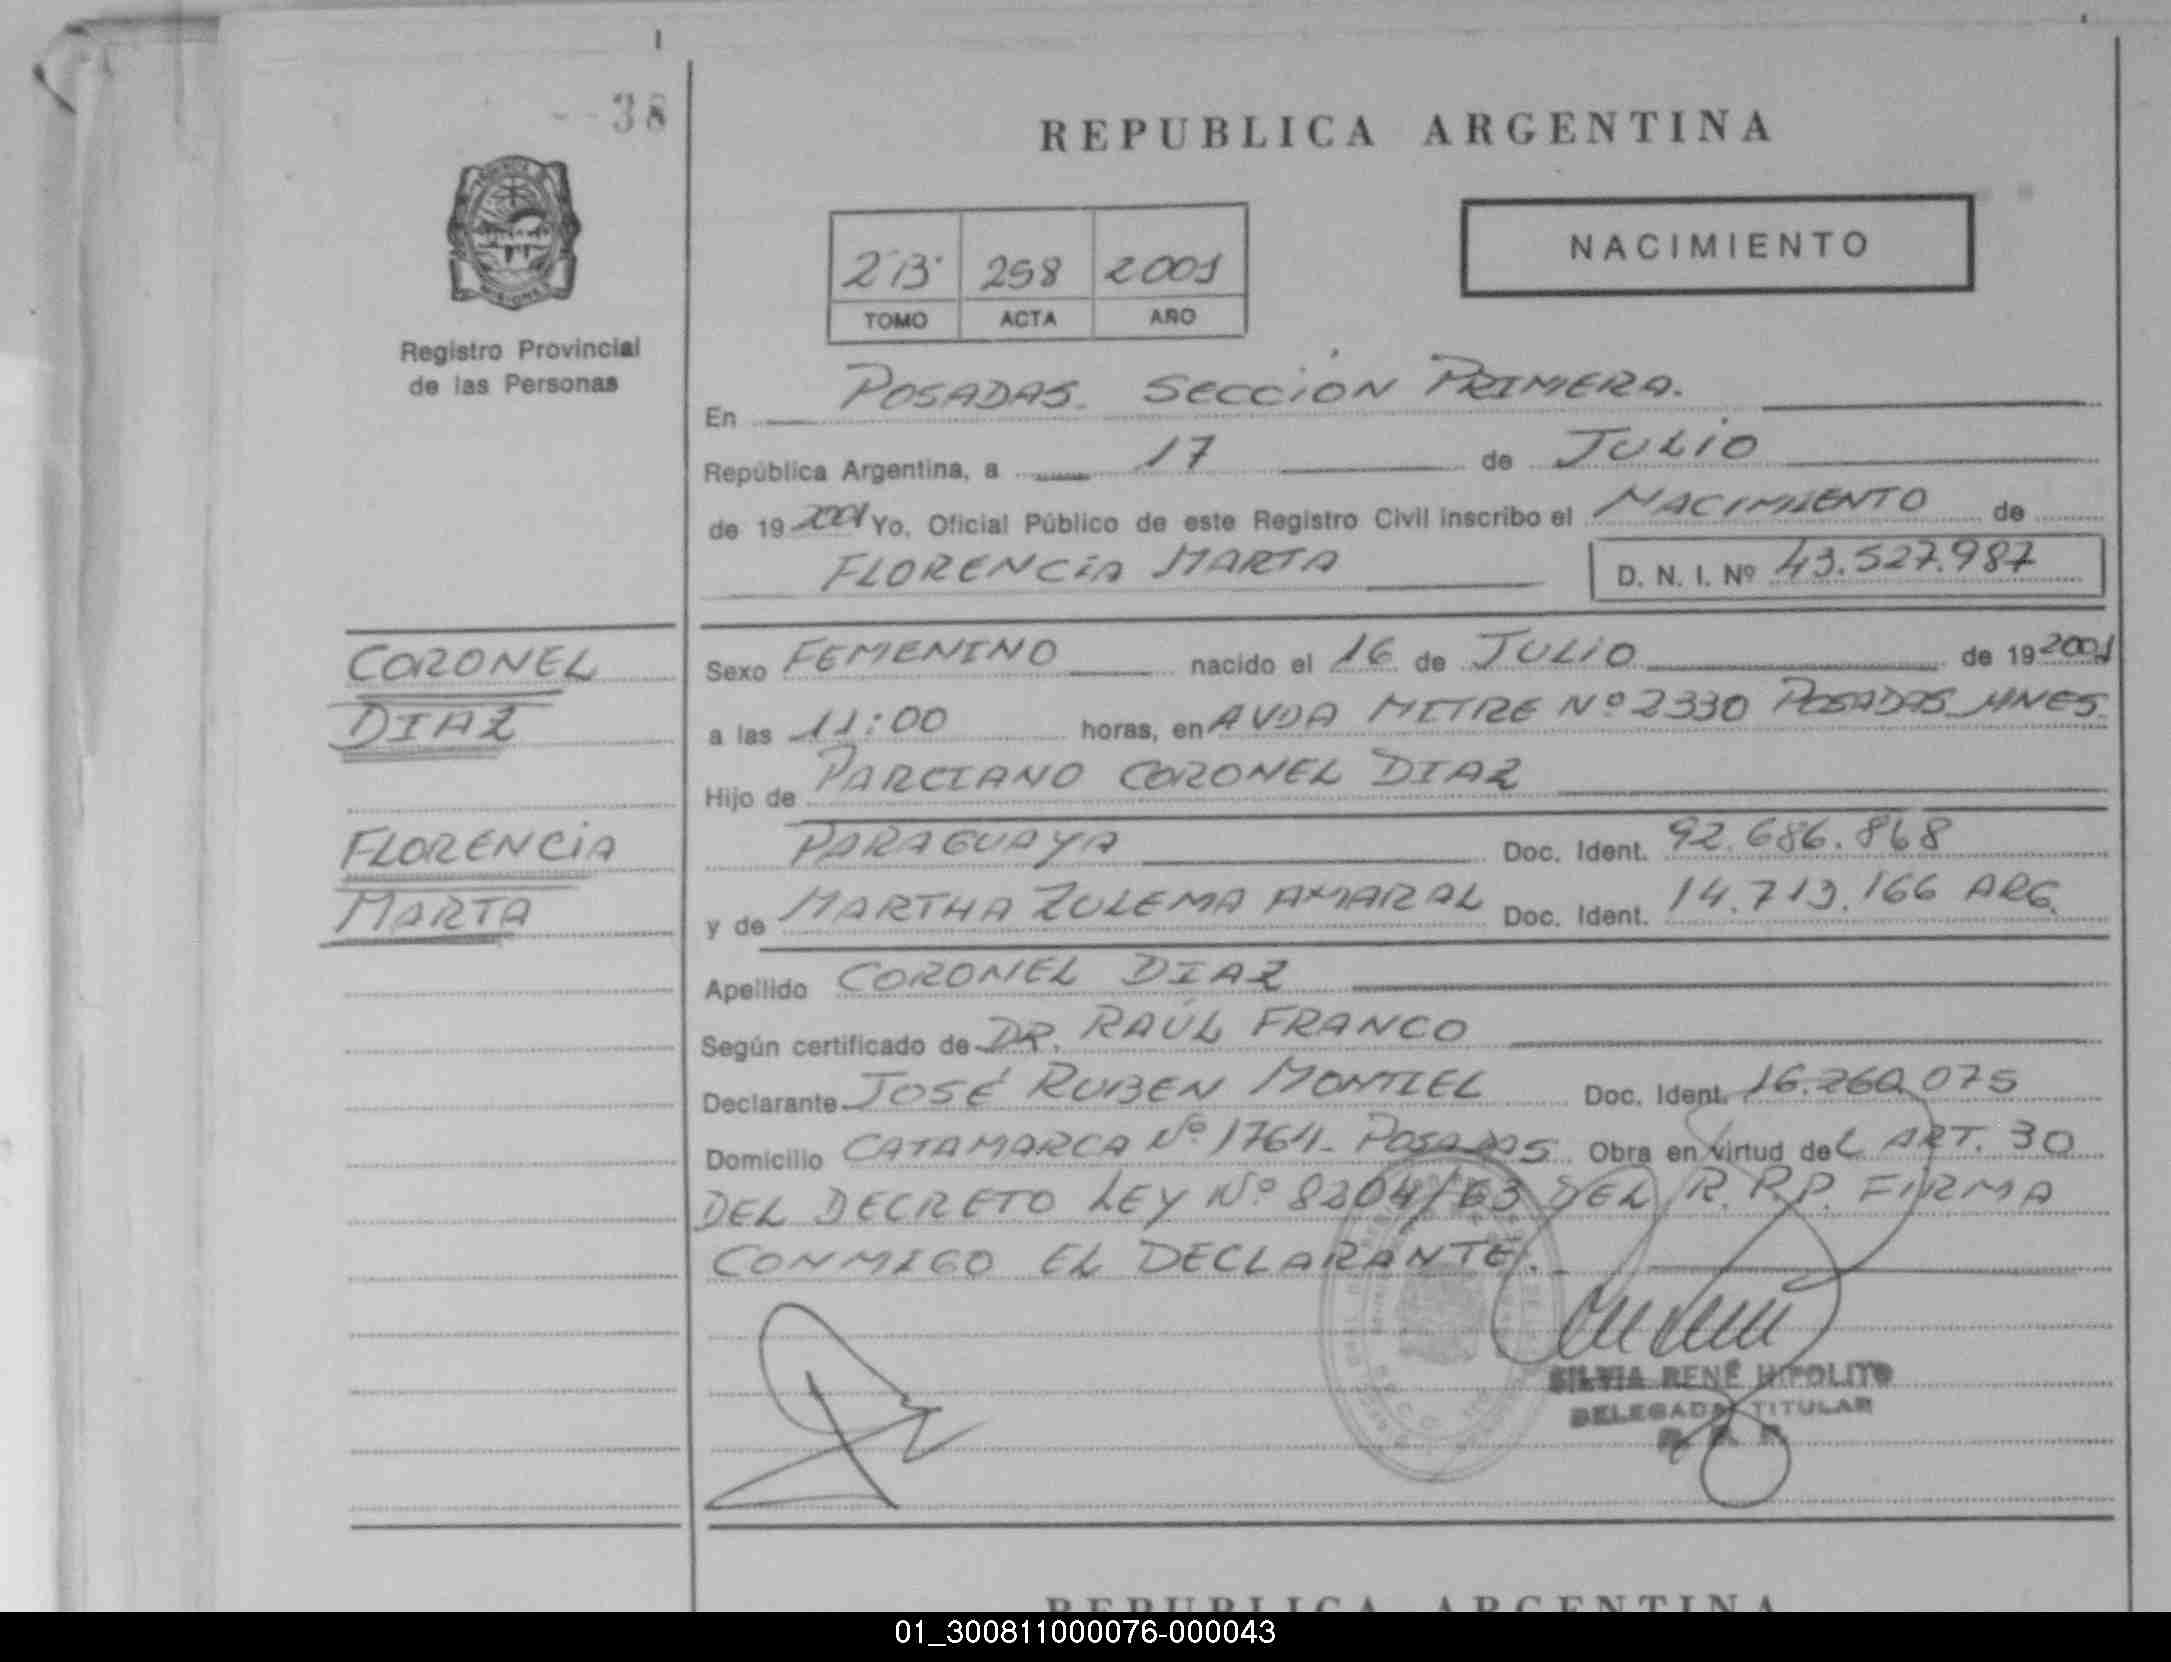 38
REPUBLICA ARGENTINA
NACIMIENTO
2 B 258 2001
TOMO ACTA AÑO
Registro Provincial
de las Personas
En POSADAS. SECCIÓN PRIMERA.
República Argentina, a 17 de JULIO
de 19 2001 Yo, Oficial Público de este Registro Civil inscribo el NACIMIENTO de
FLORENCIA MARTA D. N. I. Nº 43.527.987
CORONEL
DIAZ
FLORENCIA
MARTA
Sexo FEMENINO nacido el 16 de JULIO de 19 2001
a las 11:00 horas, en AVDA MITRE Nº 2330 POSADAS MNES.
Hijo de PARCIANO CORONEL DIAZ
PARAGUAYA Doc. Ident. 92.686.868
y de MARTHA ZULEMA AMARAL Doc. Ident. 14.713.166 ARG.
Apellido CORONEL DIAZ
Según certificado de DR. RAÚL FRANCO
Declarante JOSÉ RUBEN MONTIEL Doc. Ident. 16.260.075
Domicilio CATAMARCA Nº 1764 - POSADAS Obra en virtud deL ART. 30
DEL DECRETO LEY Nº 8204/63 DEL R.P.P. FIRMA
CONMIGO EL DECLARANTE.
SILVIA RENÉ HIPOLITO
DELEGADA TITULAR
R. P. P.
REPUBLICA ARGENTINA
01_300811000076-000043